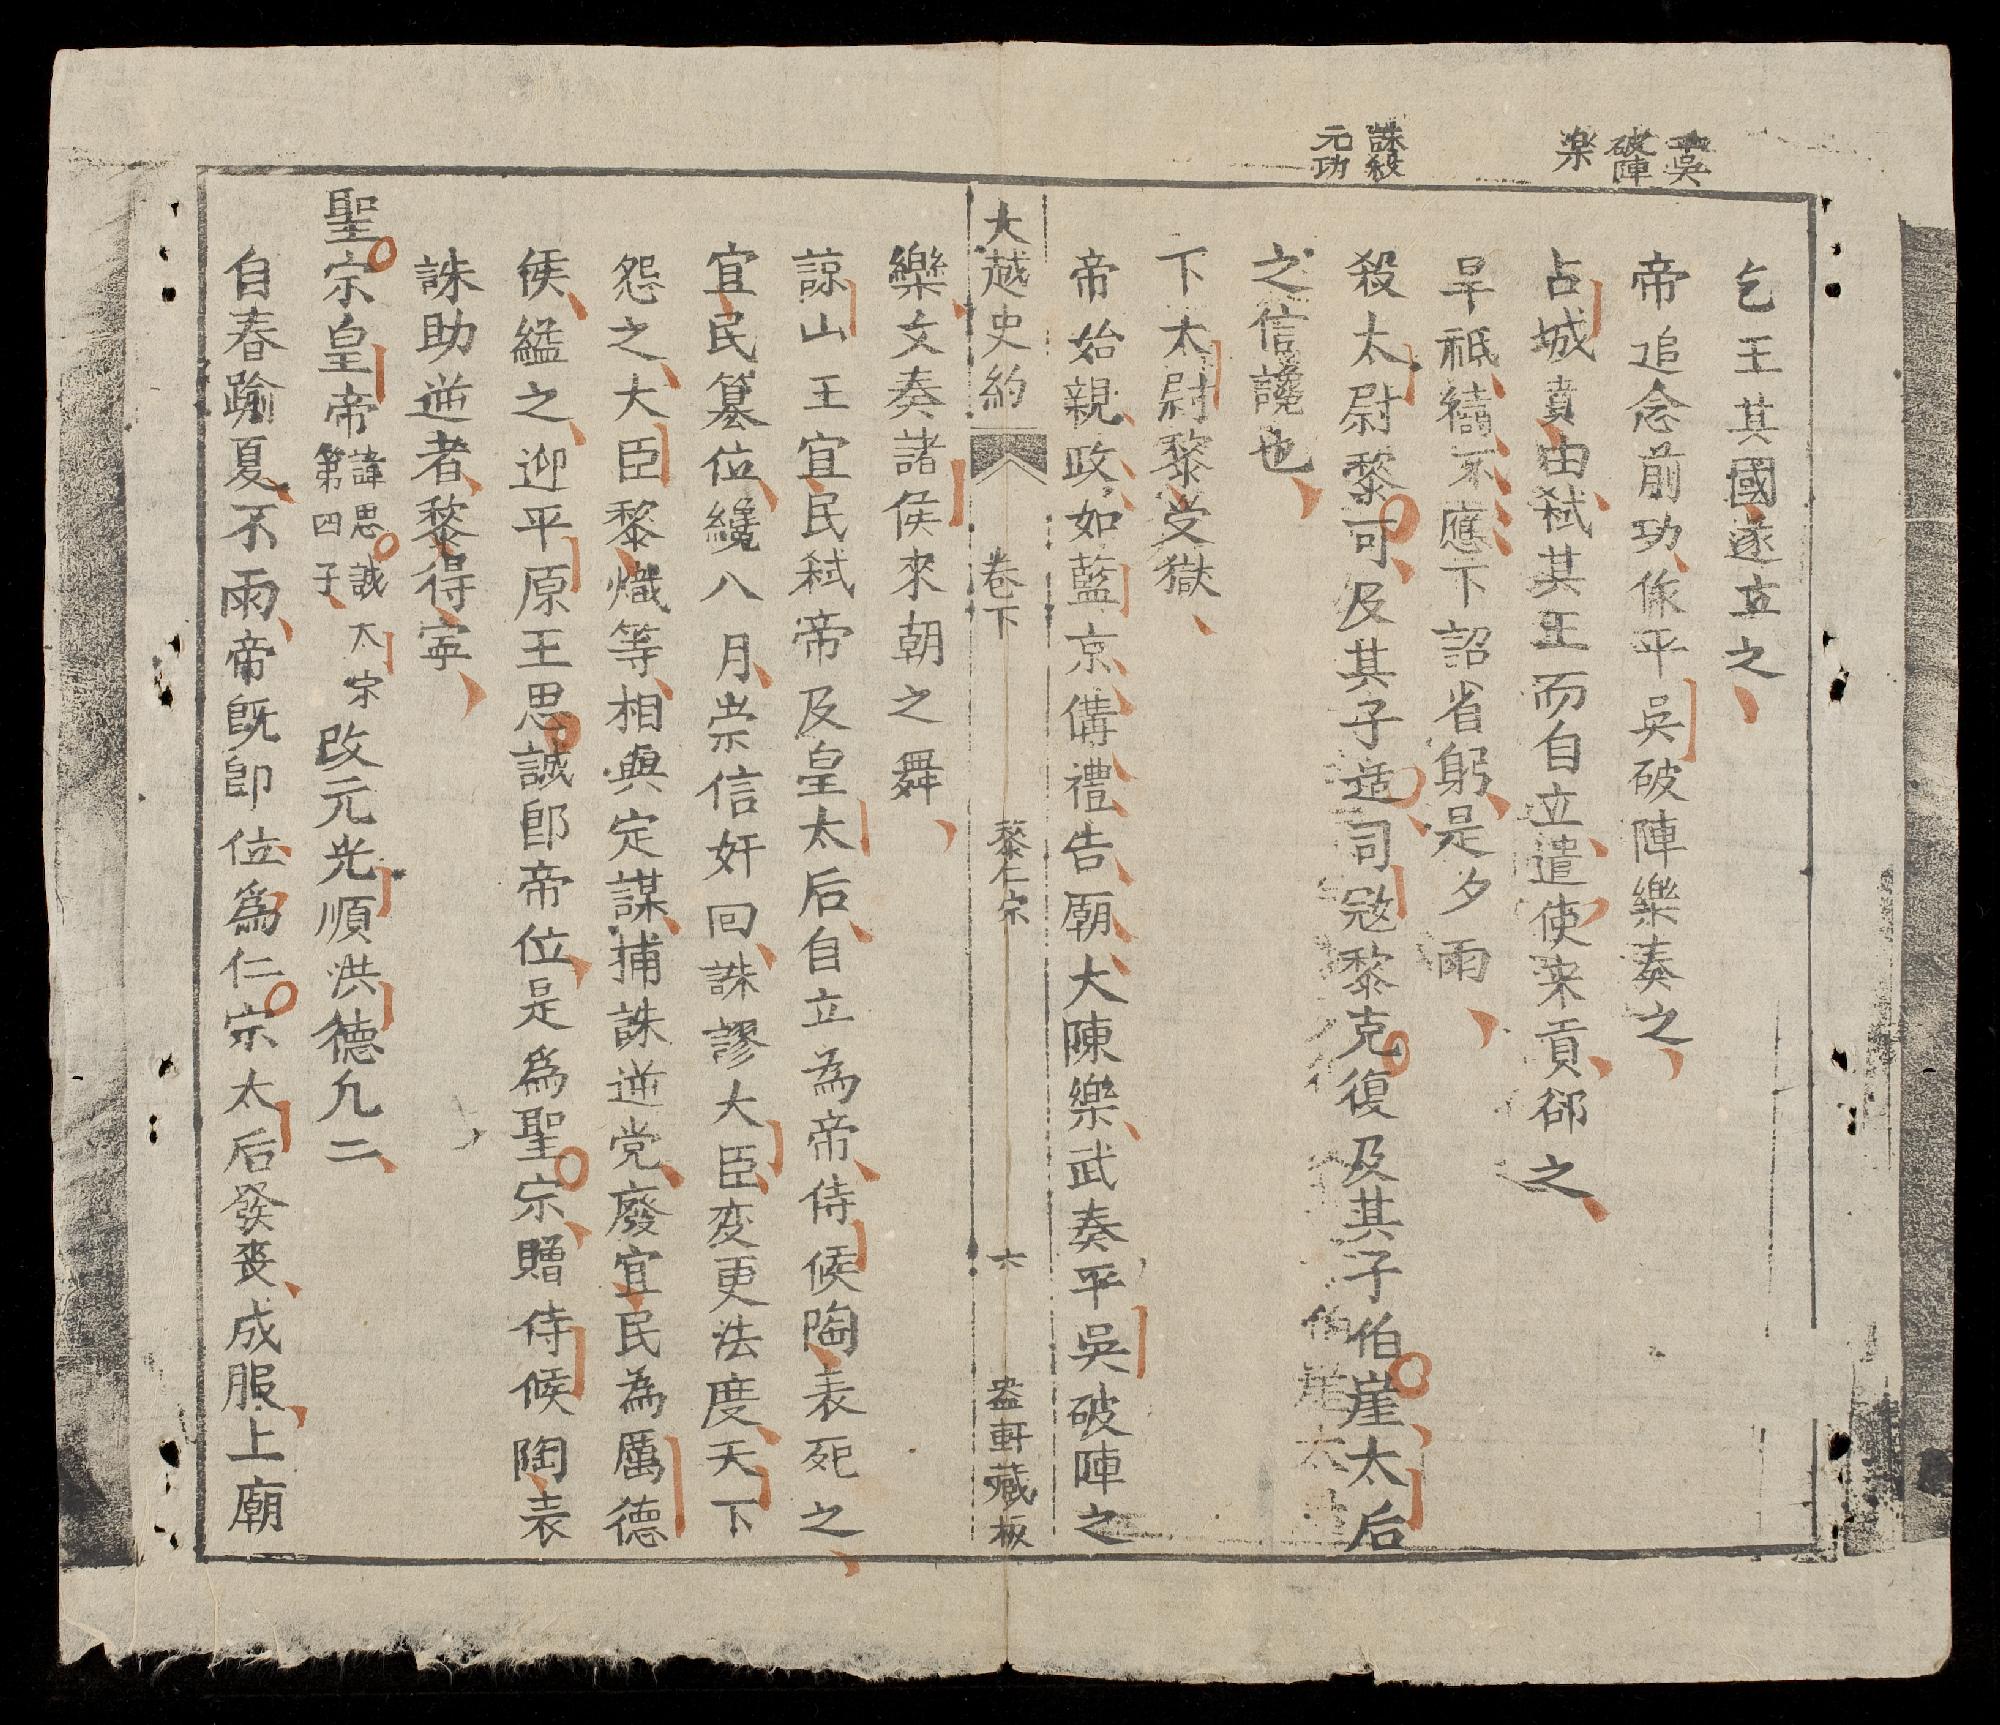 平吳
破陣
楽
誅殺
元功
乞王其國遂立之
帝追念前功作平吳破陣樂奏之
占城賁由弑其王而自立遣使来貢郤之
旱祗禱不應下詔省躬是夕雨
殺太尉黎可及其子适司冦黎克復及其子伯崖太后
之信讒也
下太尉黎受獄
帝始親政如藍京備禮告廟大陳樂武奏平吳破陣之
大越史約 卷下 黎仁宗 六 盎軒藏板
樂文奏諸侯來朝之舞
諒山王宜民弑帝及皇太后自立為帝侍候陶表死之
宜民篡位纔八月崇信奸回誅謬大臣变更法度天下
怨之大臣黎熾等相與定謀捕誅逆党廢宜民為厲德
侯縊之迎平原王思誠卽帝位是爲聖宗贈侍候陶表
誅助逆者黎得寧
聖宗皇帝諱思誠太宗
第四子改元光順洪德九二
自春踰夏不雨帝既卽位爲仁宗太后發丧成服上廟